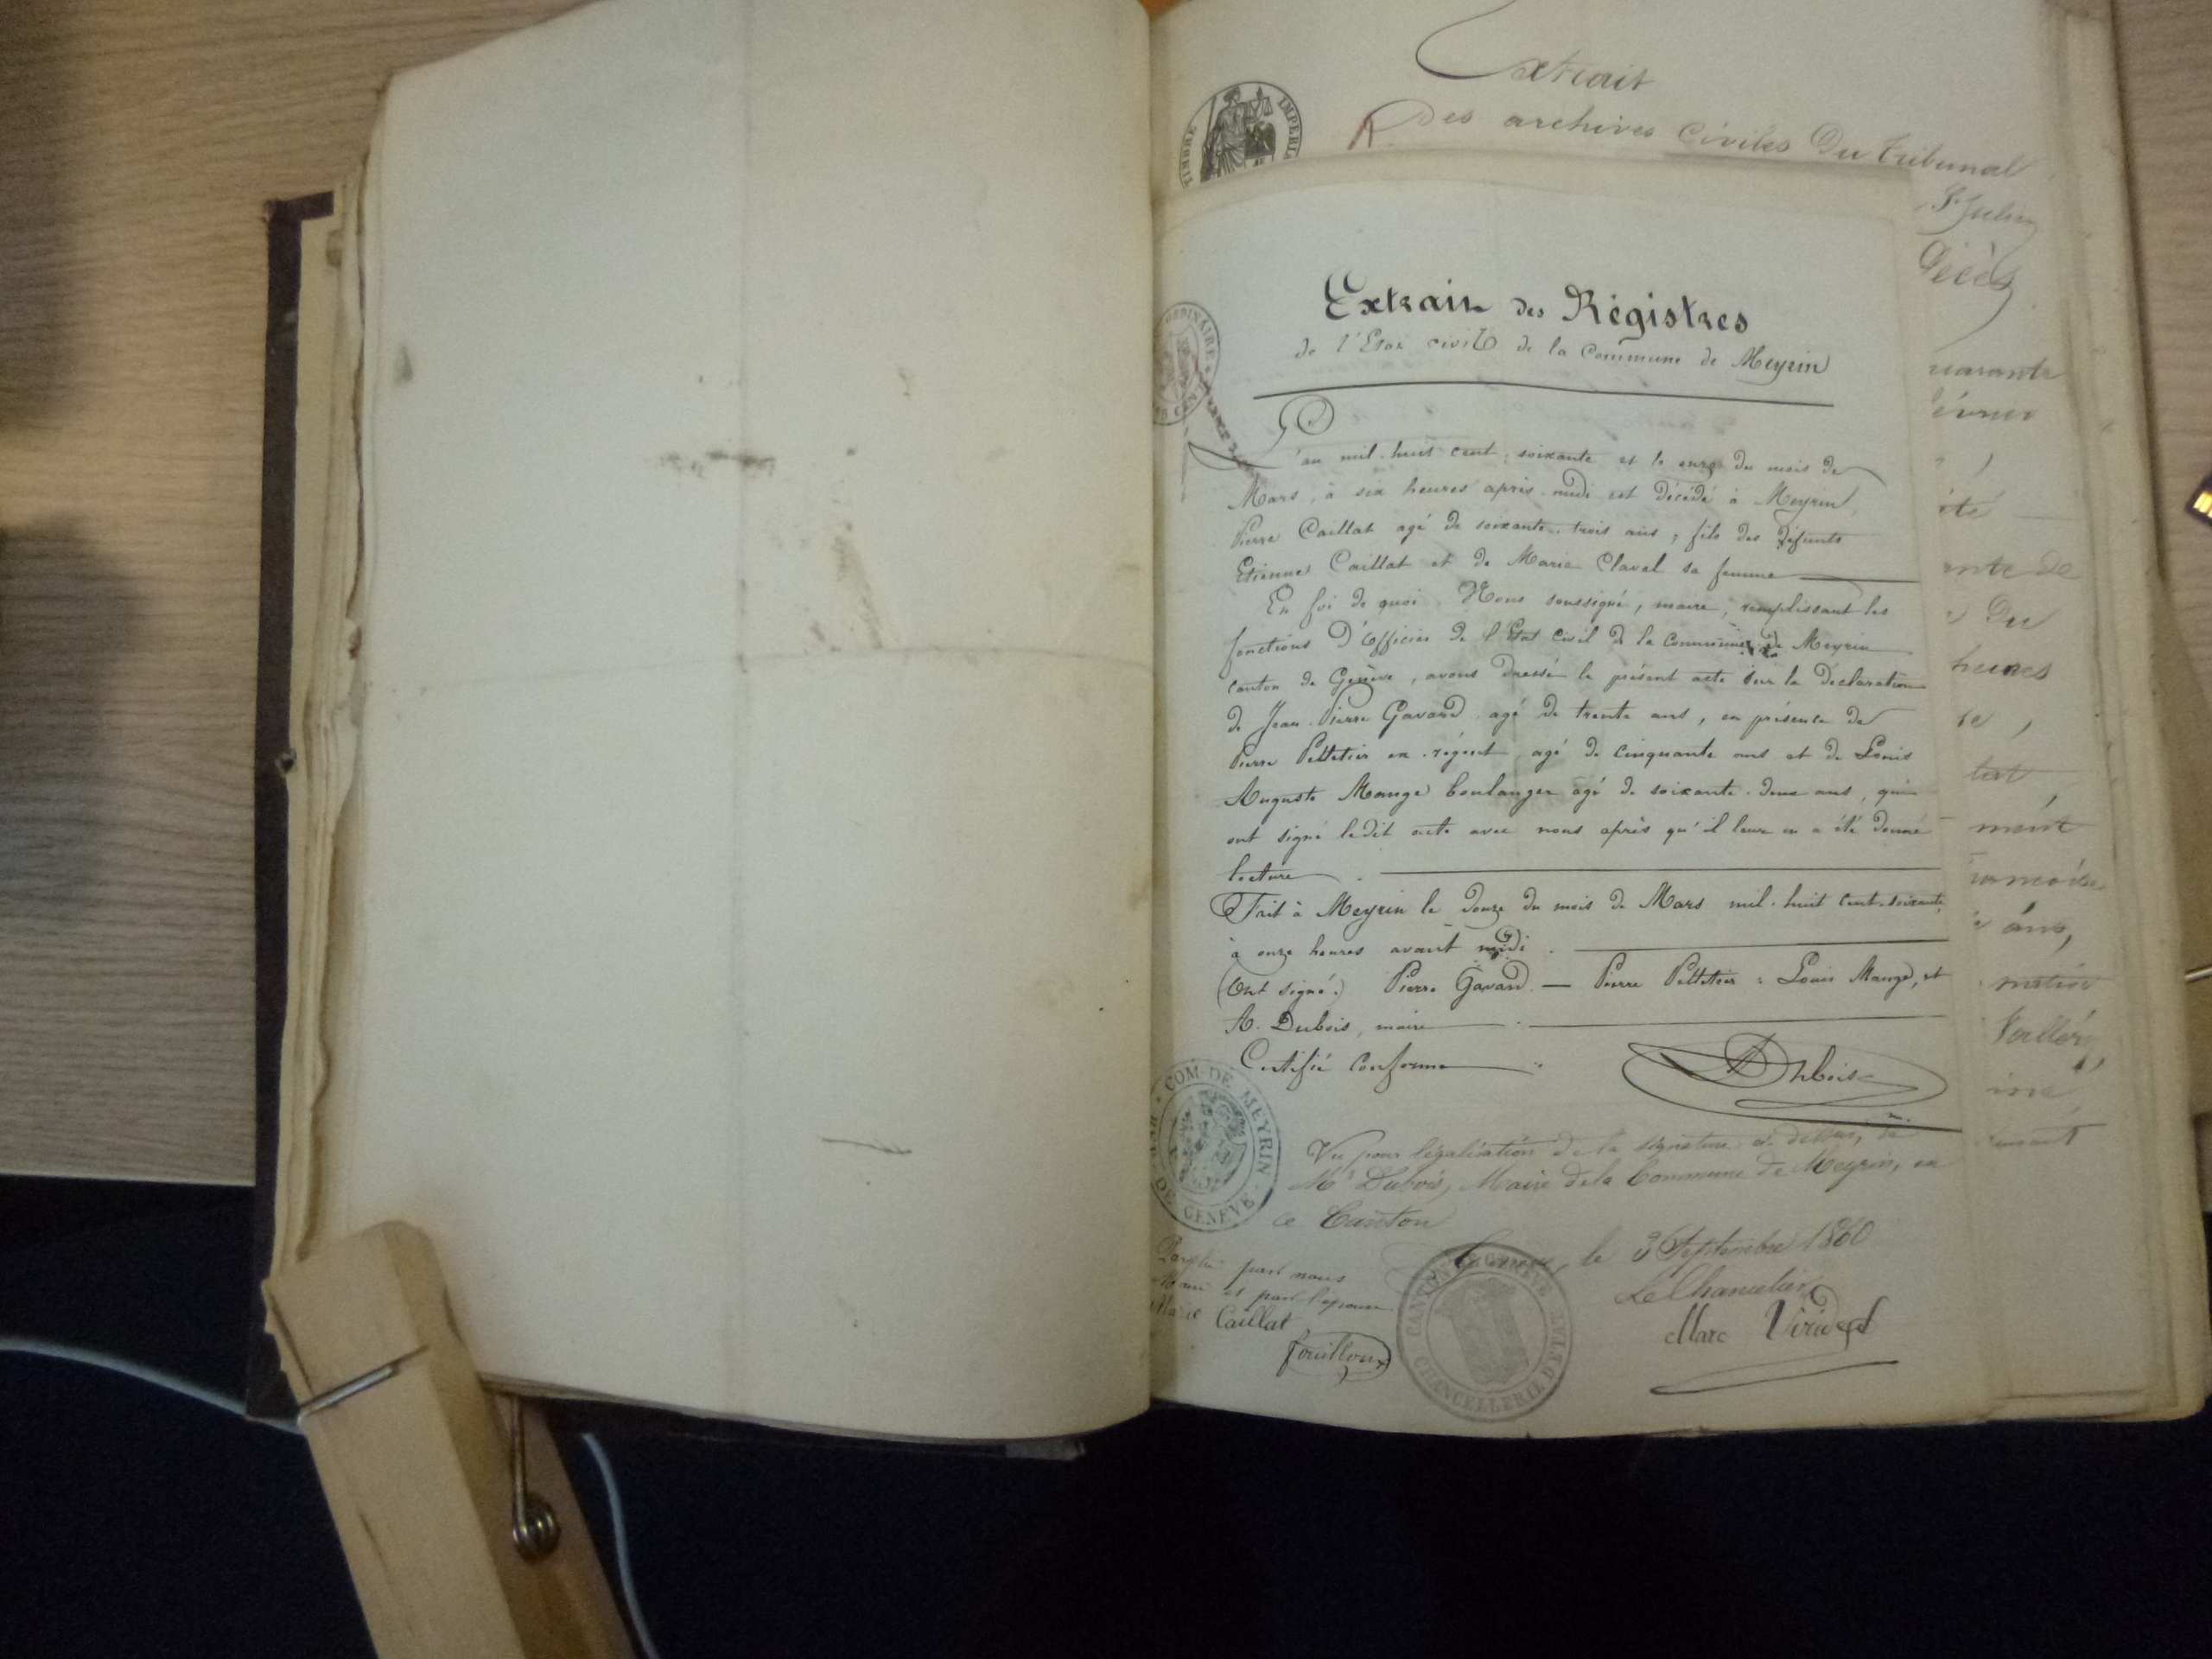 Extrait
Des archives Civiles Du tribunal
TIMBRE IMPERIAL
St Julien
Décès
Extrait des Régistres
de l'Etat civil de la Commune de Meyrin
L'an mil-huit cent-soixante et le onze du mois de
Mars, à six heures après-midi est décédé à Meyrin,
Pierre Caillat agé de soixante-trois ans, fils des défunts
Etienne Caillat et de Marie Claval sa femme
En foi de quoi, Nous soussigné, maire, remplissant les
fonctions d'Officier de l'Etat Civil de la Commune de Meyrin
canton de Genève, avons dressé le présent acte sur la déclaration
de Jean-Pierre Gavard agé de trente ans, en présence de
Pierre Pelletier ex-régent agé de cinquante ans et de Louis
Auguste Mange boulanger agé de soixante-deux ans, qui
ont signé ledit acte avec nous après qu'il leur en a été donné
lecture.
Fait à Meyrin le douze du mois de Mars mil-huit cent-soixante,
à onze heures avant midi.
(Ont signé:) Pierre Gavard. — Pierre Pelletier = Louis Mange, et
A. Dubois, maire.
Certifié conforme
Dubois
m.
COM. DE MEYRIN
DE GENEVE
Vu pour légalisation de la signature ci-dessus, de
Mr Dubois, Maire de la Commune de Meyrin, en
ce Canton
Genève, le 3 Septembre 1860
Le Chancelier
Marc Viridet
CANTON DE GENEVE CHANCELLERIE D'ETAT
par nous
Maire et par l'épouse
Marie Caillat
fouilloux
uarante
évrier
été
ente de
Du
heures
ment
ans,